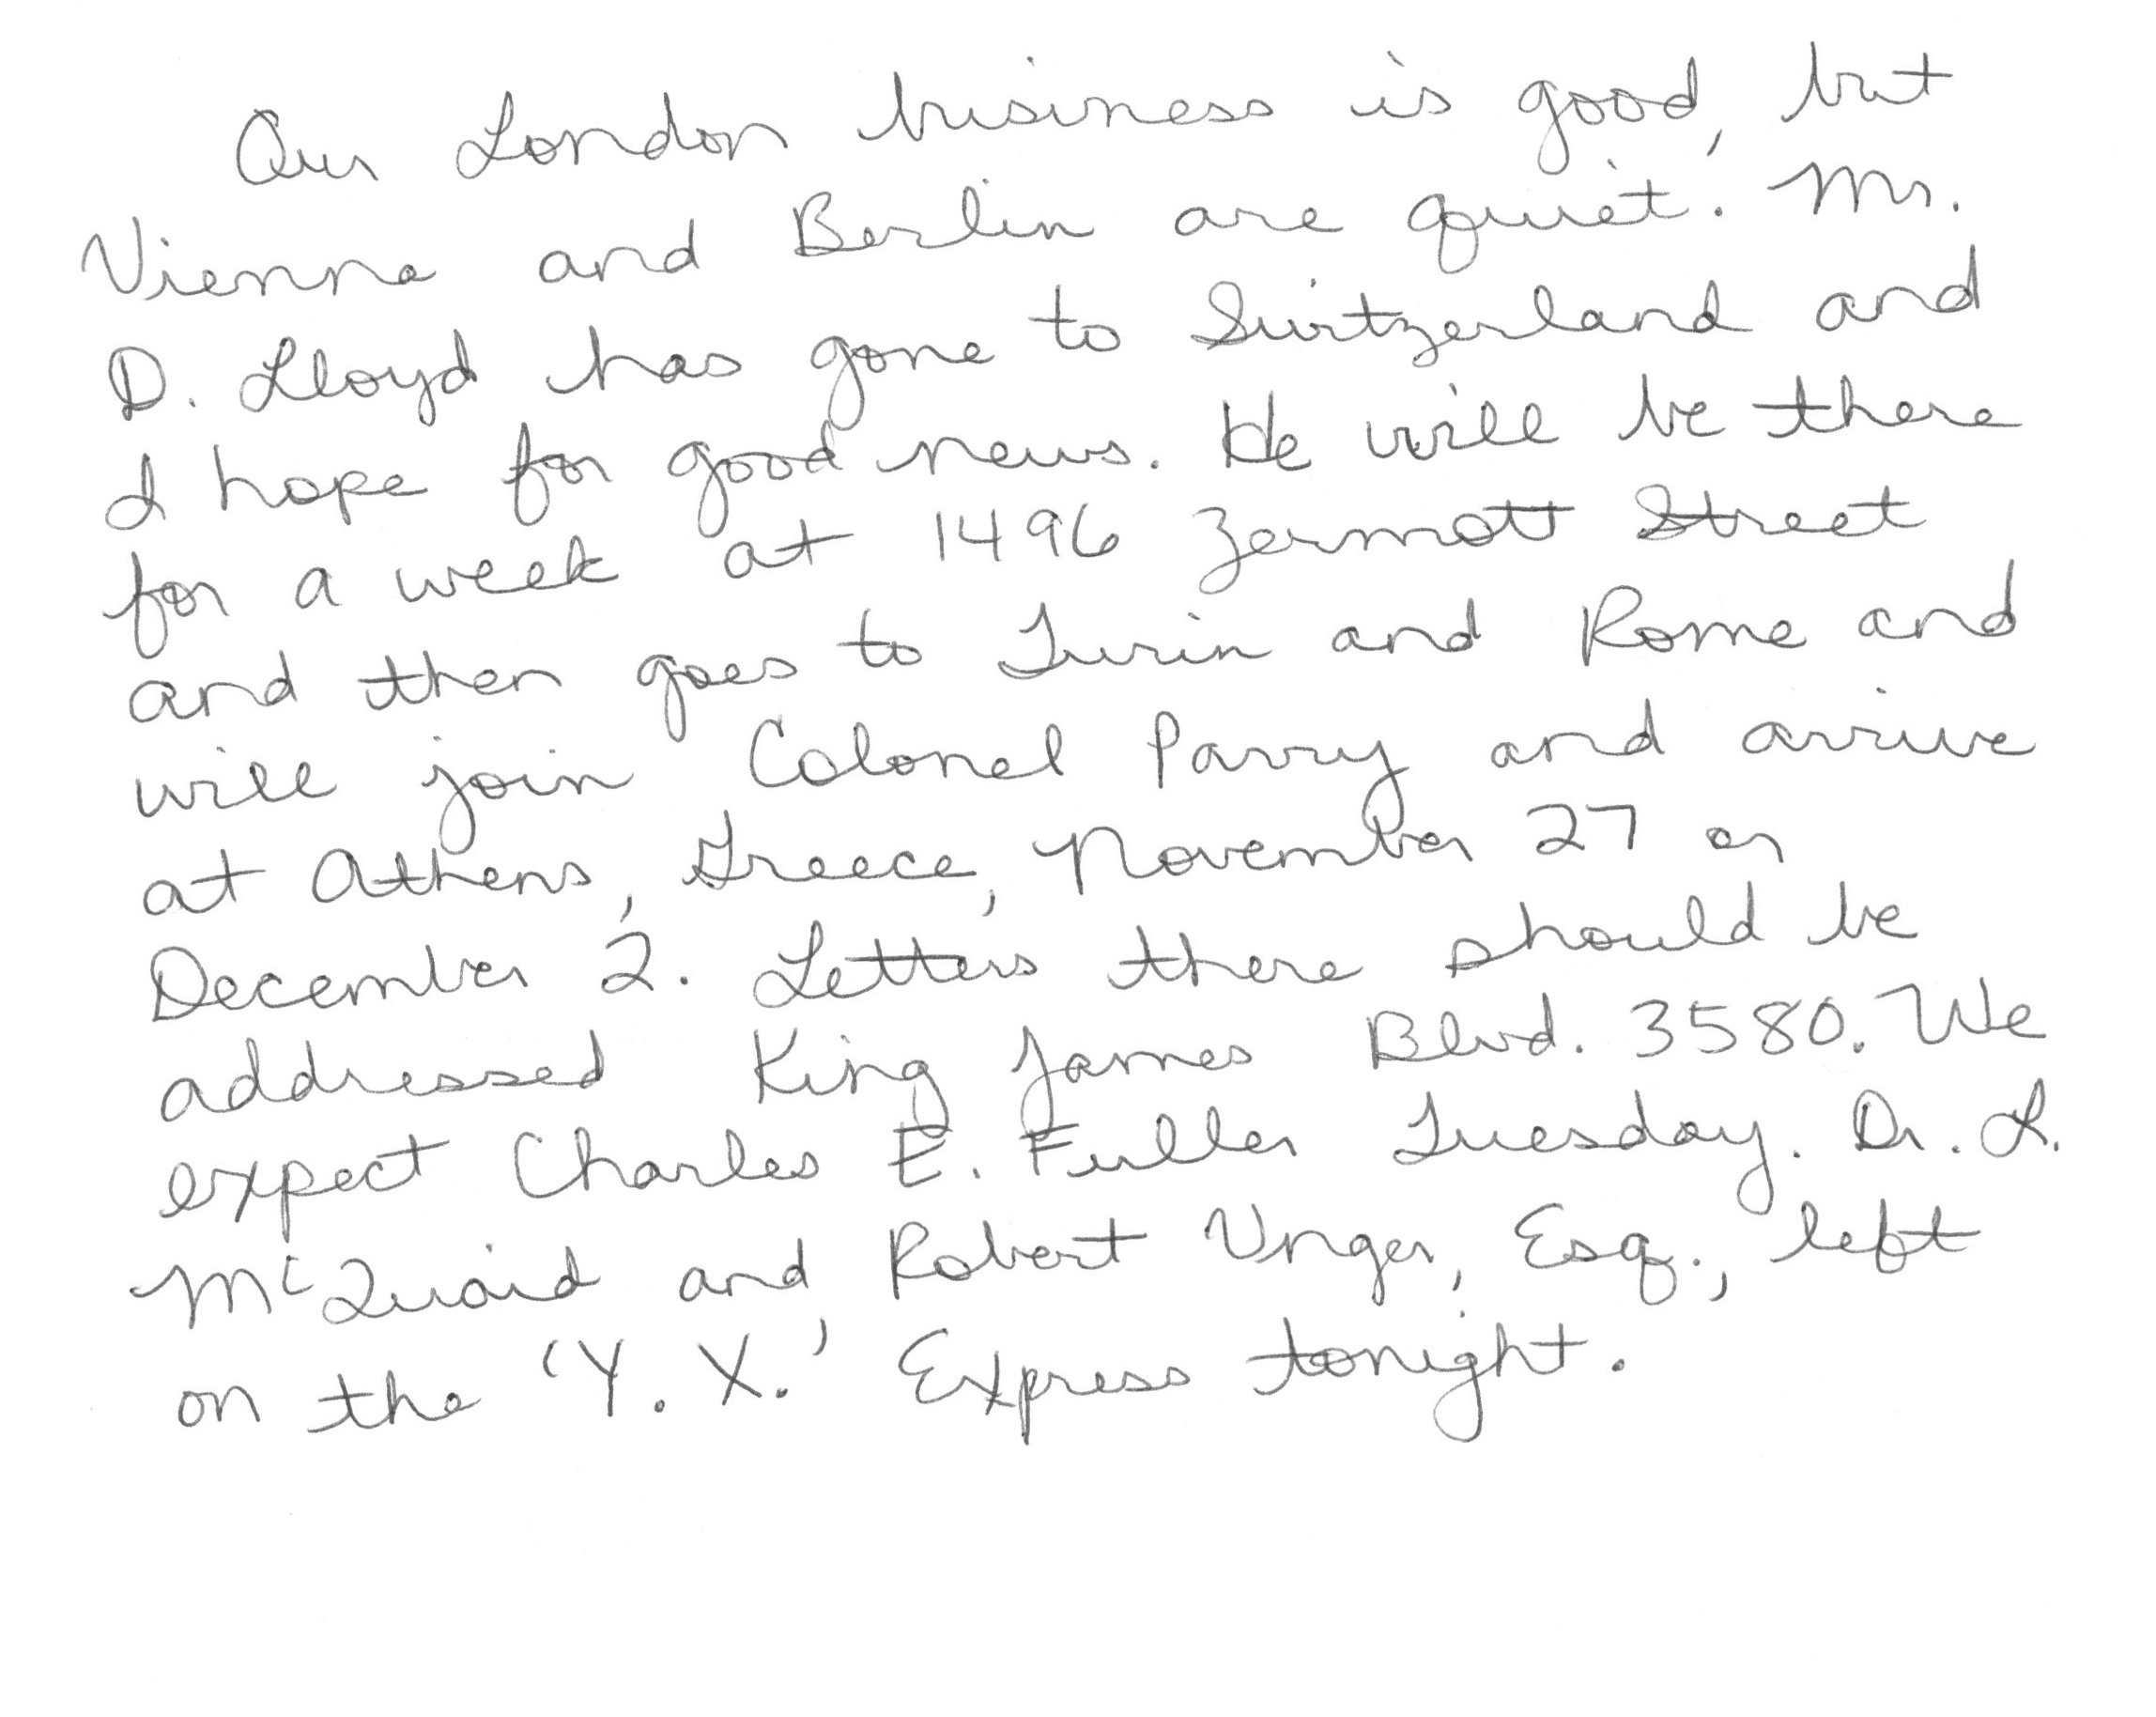 Our London business is good, but
Vienna and Berlin are quiet. Mr.
D. Lloyd has gone to Switzerland and
I hope for good news. He will be there
for a week at 1496 Zermott Street
and then goes to Turin and Rome and
will join Colonel Parry and arrive
at Athens, Greece, November 27 or
December 2. Letters there should be
addressed King James Blvd. 3580. We
expect Charles E. Fuller Tuesday. Dr. L.
McQuaid and Robert Unger, Esq., left
on the 'Y. X.' Express tonight.